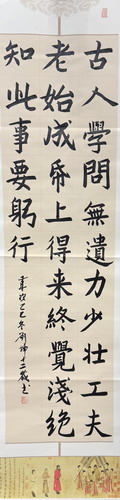 古人學問無遺力少壯工夫
老始成帋上得来終覺淺絶
知此事要躬行